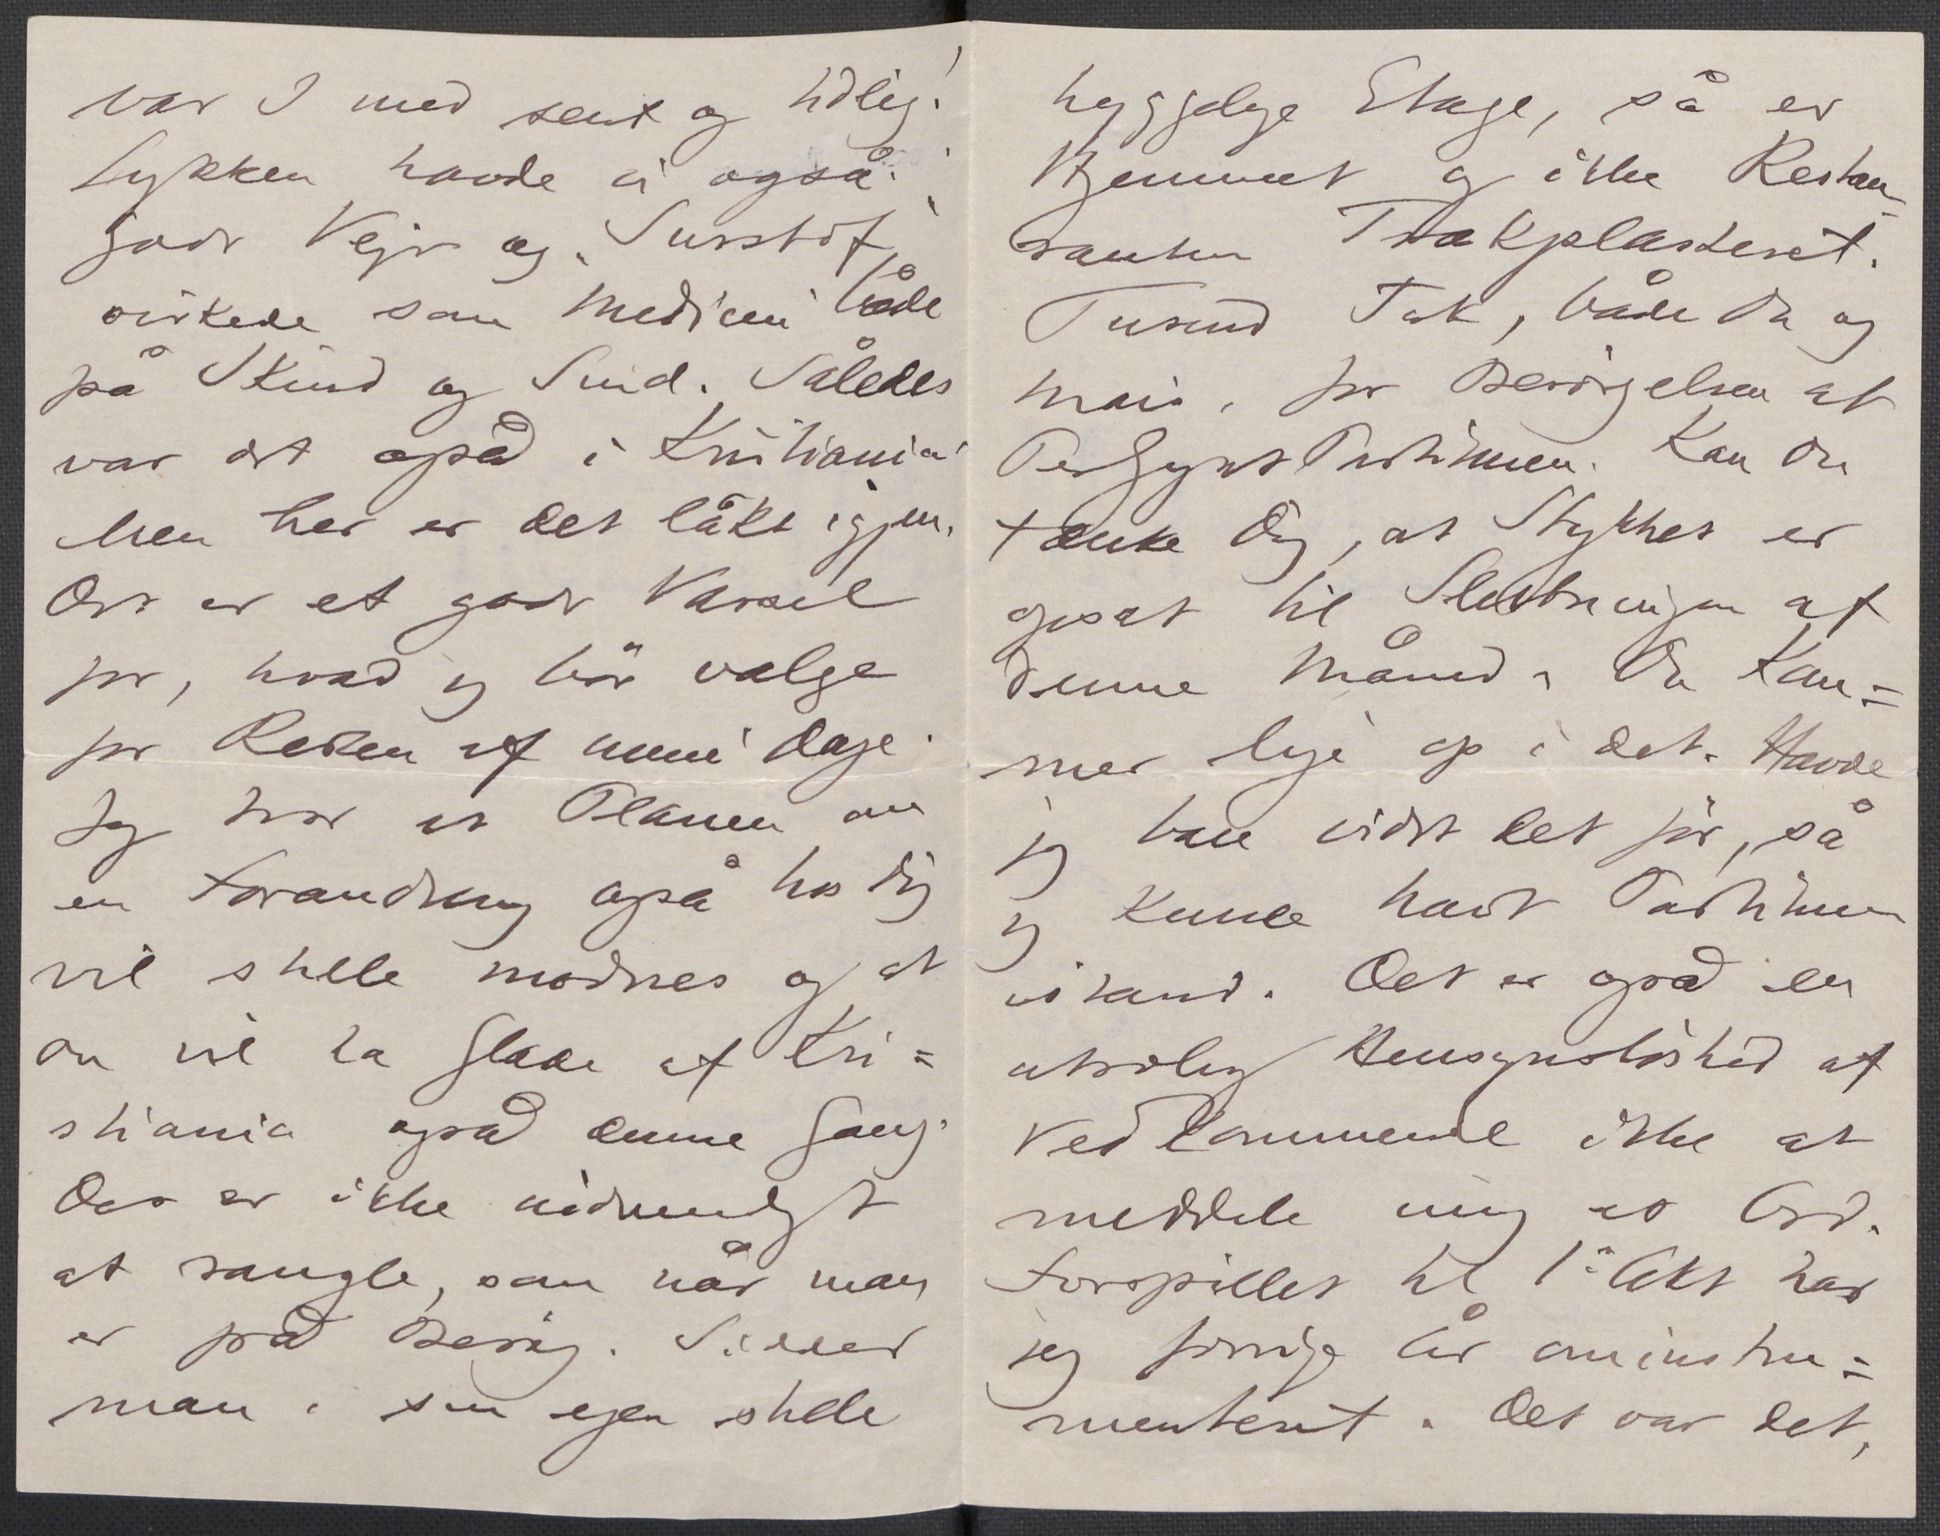 var I med sent og tidlig!
Lykken havde vi også:
godt Vejr og "Surstof"
virkede som Medicin både
på Skind og Sind. Således
var det også i Kristiania.
Men her er det låkt igjen.
Det er et godt Varsel
for, hvad jeg bør vælge
for Resten af mine Dage.
Jeg tror at Planen om
en Forandring også hos Dig
vil stille modnes og at
Du vil ha Glæde af Kri=
stiania også denne Gang.
Det er ikke nødvendigt
at rangle, som når man
er på Besøg. Sidder
man i sin egen stille
hyggelige Etage, så er
Hjemmet og ikke Restau-
ranten Trækplasteret.
Tusind Tak, både Du og
Marie, for Besørgelsen af
Peer Gynt Partituren. Kan Du
tænke Dig, at Stykket er
opsat til Slutningen af
denne Måned. Du kom=
mer lige op i det. Havde
jeg bare vidst det før, så
jeg kunde havt Partituren
istand. Det er også en
utrolig Hensynsløshed af
Vedkommende ikke at
meddele mig et Ord.
Forspillet til 1ste Akt har
jeg forrige År ominstru=
menteret. Det var det,